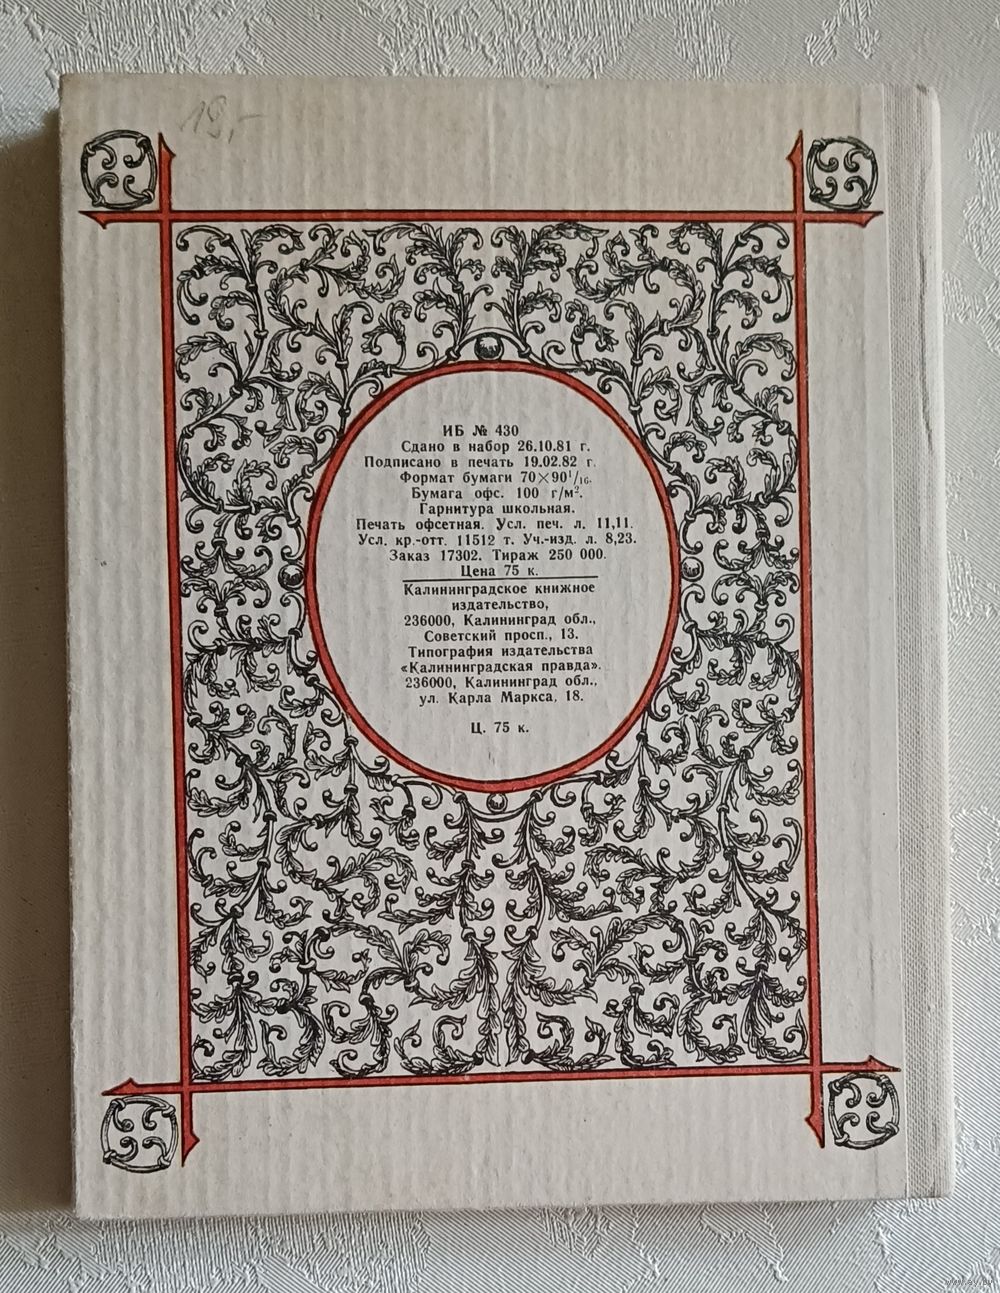 19,-
ИБ № 430
Сдано в набор 26.10.81 г.
Подписано в печать 19.02.82 г.
Формат бумаги 70×90¹/₁₆.
Бумага офс. 100 г/м².
Гарнитура школьная.
Печать офсетная. Усл. печ. л. 11,11.
Усл. кр.-отт. 11512 т. Уч.-изд. л. 8,23.
Заказ 17302. Тираж 250 000.
Цена 75 к.
Калининградское книжное
издательство,
236000, Калининград обл.,
Советский просп., 13.
Типография издательства
«Калининградская правда».
236000, Калининград обл.,
ул. Карла Маркса, 18.
Ц. 75 к.